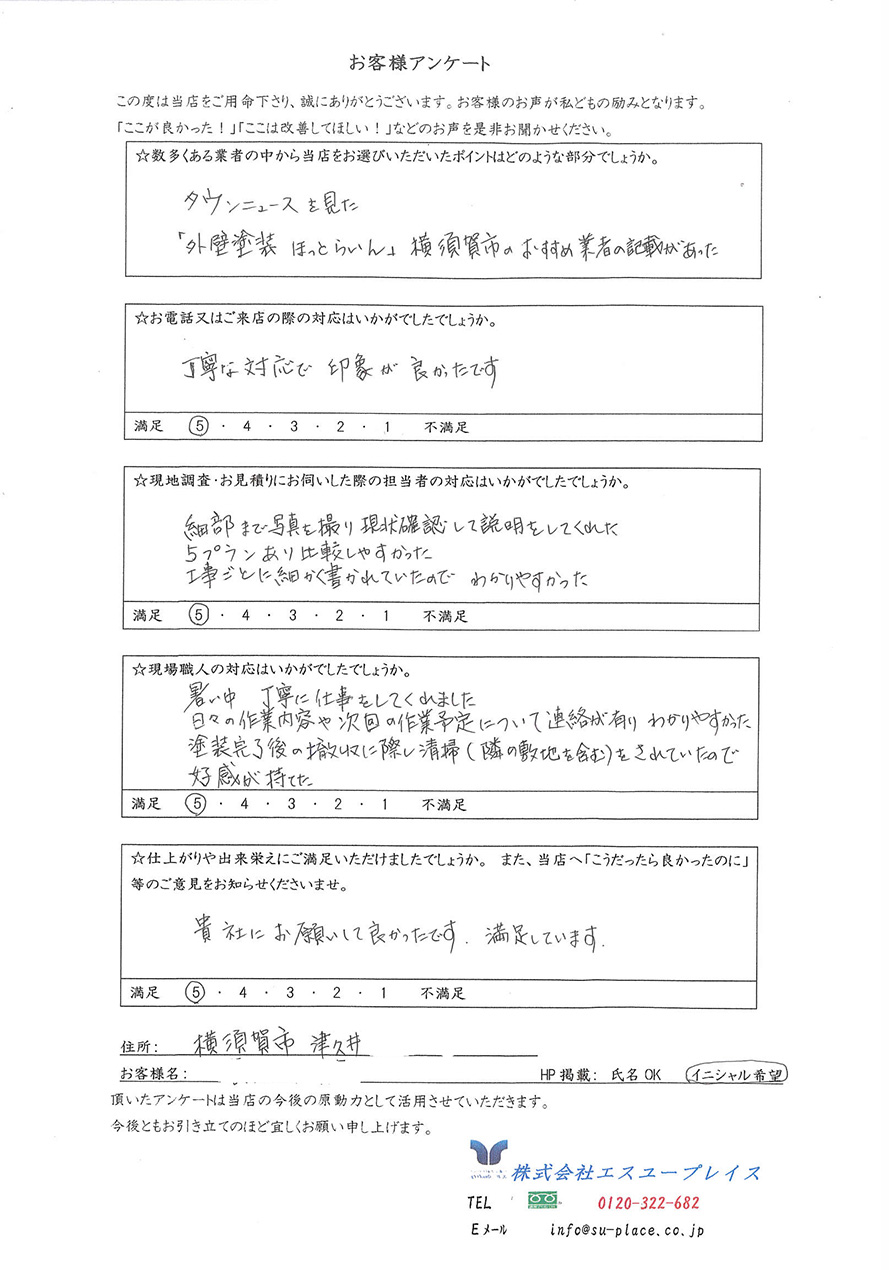 お客様アンケート
この度は当店をご用命下さり、誠にありがとうございます。お客様のお声が私どもの励みとなります。
「ここが良かった！」「ここは改善してほしい！」などのお声を是非お聞かせください。
☆数多くある業者の中から当店をお選びいただいたポイントはどのような部分でしょうか。
タウンニュースを見た
「外壁塗装 ほっとらいん」横須賀市のおすすめ業者の記載があった
☆お電話又はご来店の際の対応はいかがでしたでしょうか。
丁寧な対応で 印象が 良かったです
満足 ⑤ ・ 4 ・ 3 ・ 2 ・ 1 不満足
☆現地調査・お見積りにお伺いした際の担当者の対応はいかがでしたでしょうか。
細部まで写真を撮り 現状確認して説明をしてくれた
5プランあり比較しやすかった
工事ごとに細かく書かれていたので わかりやすかった
満足 ⑤ ・ 4 ・ 3 ・ 2 ・ 1 不満足
☆現場職人の対応はいかがでしたでしょうか。
暑い中 丁寧に仕事をしてくれました
日々の作業内容や次回の作業予定について連絡が有り わかりやすかった
塗装完了後の撤収に際し清掃(隣の敷地を含む)をされていたので
好感が持てた
満足 ⑤ ・ 4 ・ 3 ・ 2 ・ 1 不満足
☆仕上がりや出来栄えにご満足いただけましたでしょうか。 また、当店へ「こうだったら良かったのに」
等のご意見をお知らせくださいませ。
貴社にお願いして良かったです. 満足しています.
満足 ⑤ ・ 4 ・ 3 ・ 2 ・ 1 不満足
住所: 横須賀市 津久井
お客様名: HP掲載: 氏名OK イニシャル希望
頂いたアンケートは当店の今後の原動力として活用させていただきます。
今後ともお引き立てのほど宜しくお願い申し上げます。
株式会社エスユープレイス
TEL 0120-322-682
Eメール info@su-place.co.jp